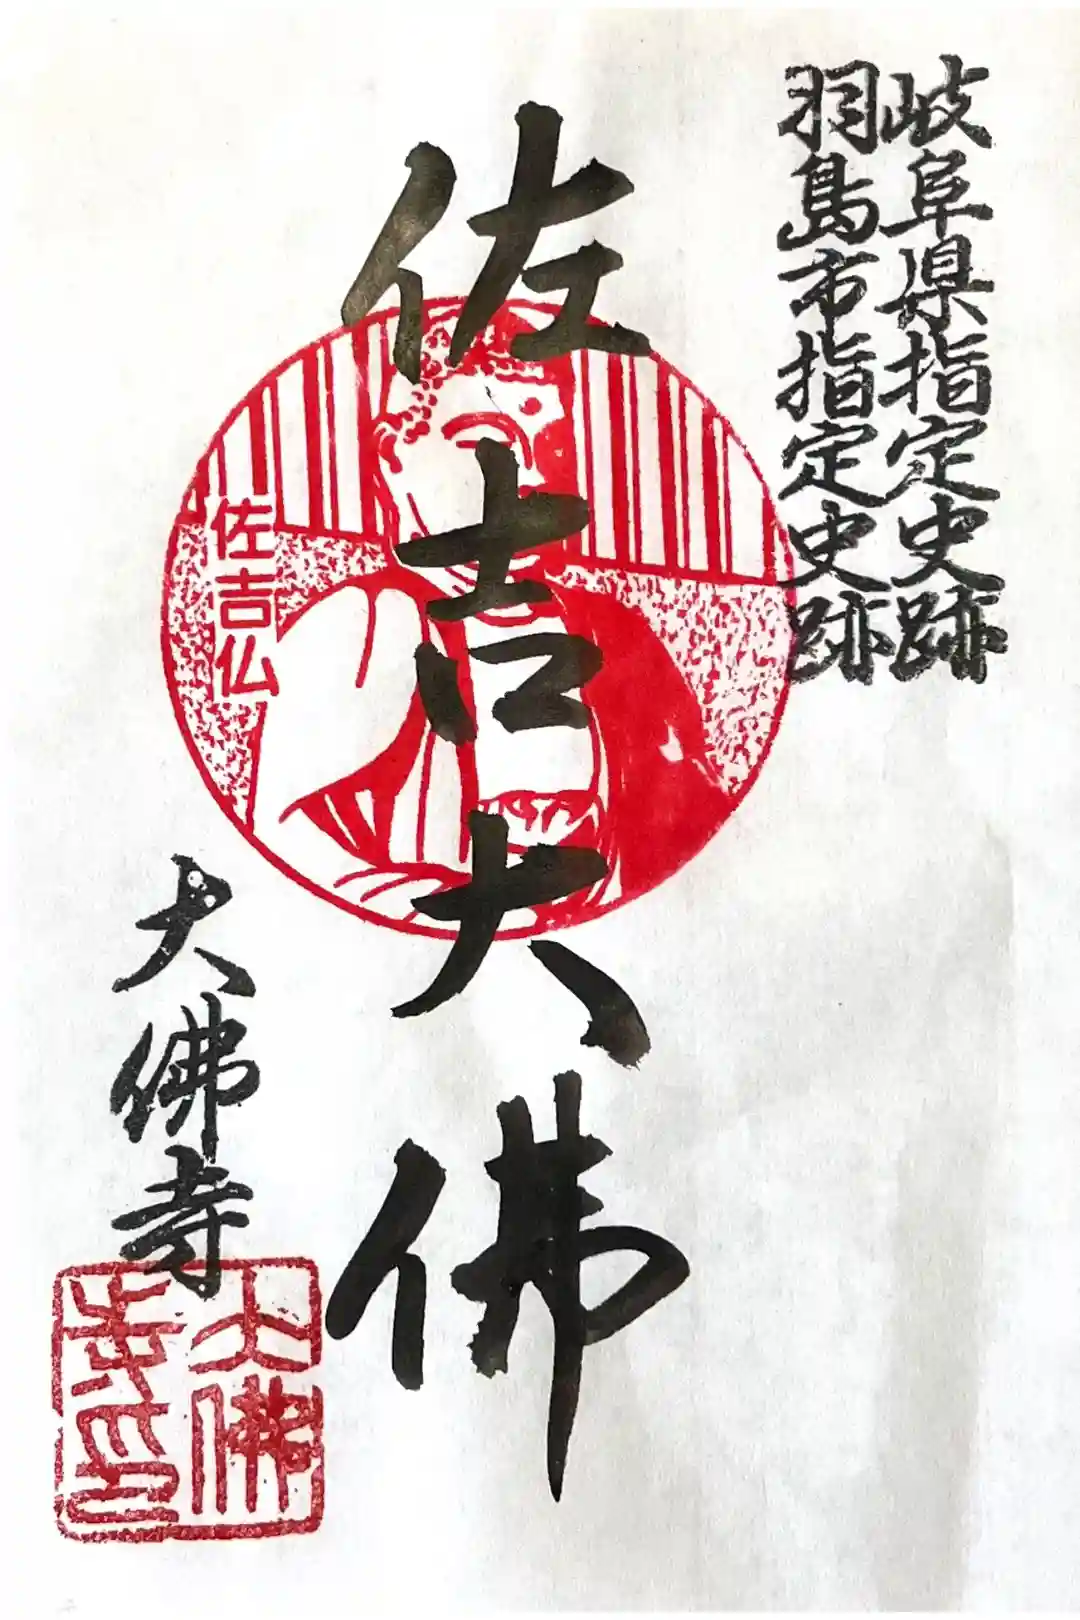 岐阜県指定史跡
羽島市指定史跡
佐吉大佛
佐吉仏
大佛寺
大佛
寺印